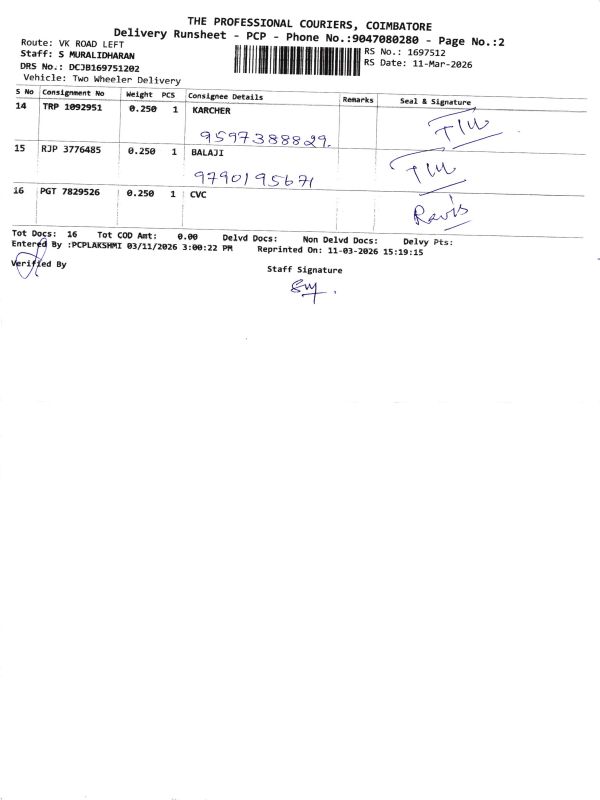 THE PROFESSIONAL COURIERS, COIMBATORE
Delivery Runsheet - PCP - Phone No.:9047080280 - Page No.:2
Route: VK ROAD LEFT
Staff: S MURALIDHARAN
DRS No.: DCJB169751202
Vehicle: Two Wheeler Delivery
RS No.: 1697512
RS Date: 11-Mar-2026
S No Consignment No Weight PCS Consignee Details Remarks Seal & Signature
14 TRP 1092951 0.250 1 KARCHER
9597388829.
15 RJP 3776485 0.250 1 BALAJI
9790195671
16 PGT 7829526 0.250 1 CVC
Tot Docs: 16 Tot COD Amt: 0.00 Delvd Docs: Non Delvd Docs: Delvy Pts:
Entered By :PCPLAKSHMI 03/11/2026 3:00:22 PM Reprinted On: 11-03-2026 15:19:15
Verified By
Staff Signature